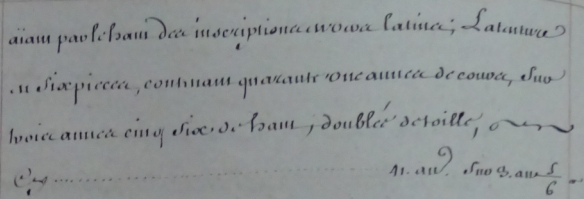 aiant par le haut des inscriptions en vers latins; La tenture
en six pieces, contenant quarante une aunes de cours, sur
trois aunes cinq six.es de haut, doublée de toille,
Cy ............ 41. au. sur 3. au. 5/6